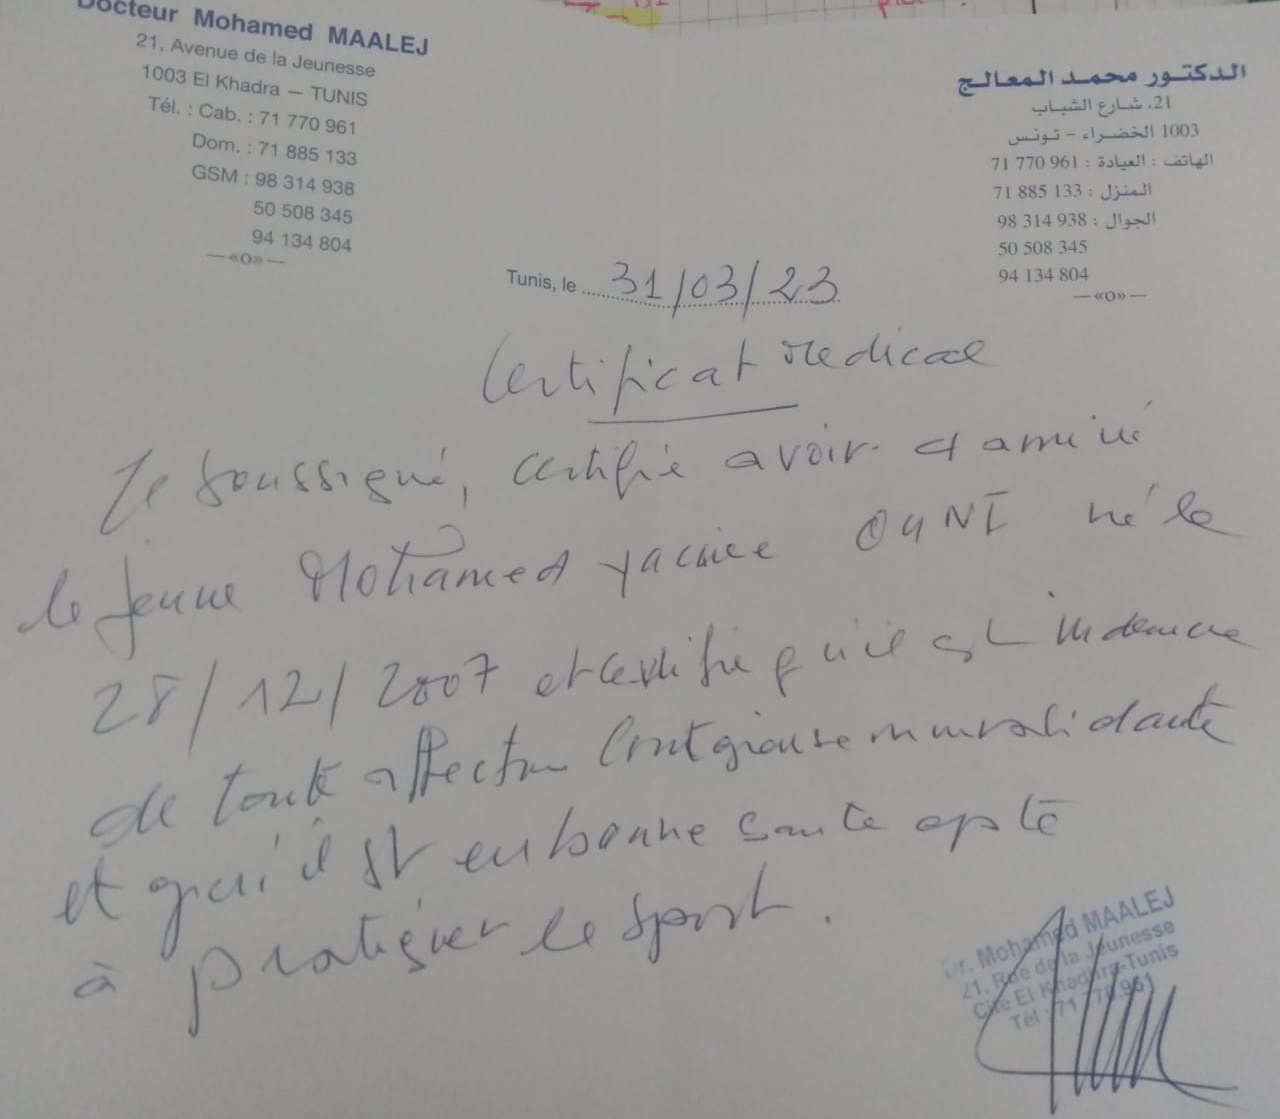 Docteur Mohamed MAALEJ
21, Avenue de la Jeunesse
1003 El Khadra – TUNIS
Tél. : Cab. : 71 770 961
Dom. : 71 885 133
GSM : 98 314 938
50 508 345
94 134 804
—«O»—
الدكتور محمد المعالج
21، شارع الشباب
1003 الخضراء - تونس
الهاتف : العيادة : 71 770 961
المنزل : 71 885 133
الجوال : 98 314 938
50 508 345
94 134 804
—«O»—
Tunis, le 31/03/23
Certificat Medical
Je soussigné, certifie avoir examiné
le jeune Mohamed Yacine OUNI né le
28/12/2007 et certifie qu'il est indemne
de toute affection contagieuse
et qu'il est en bonne sante apte
à pratiquer le sport.
Dr. Mohamed MAALEJ
21, Rue de la Jeunesse
Cité El Khadhra-Tunis
Tél : 71 770 961